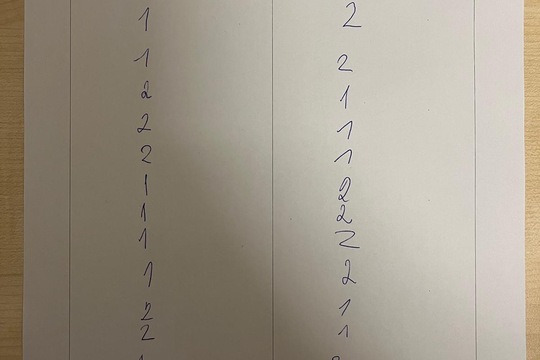 1 2
1 2
2 1
2 1
2 1
1 2
1 2
1 2
1 2
2 1
2 1